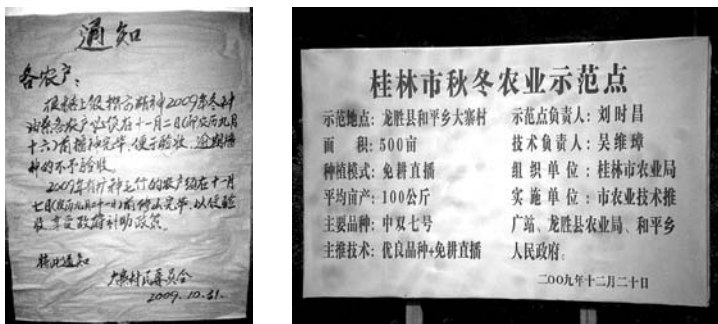 通知
各农户：
根据上级指示精神2009年冬种
油菜各农户必须在十一月二日(即农历九月
十六)前播种完毕，便于验收，逾期播
种的不予验收。
2009年 的农户须在十一月
七日(农历九月二十一)前 完毕，以便验
收享受政府补助政策。
特此通知
大寨村民委员会
2009.10.31.
桂林市秋冬农业示范点
示范地点：龙胜县和平乡大寨村
面 积：500亩
种植模式：免耕直播
平均亩产：100公斤
主要品种：中双七号
主推技术：优良品种+免耕直播
示范点负责人：刘时昌
技术负责人：吴维璋
组织单位：桂林市农业局
实施单位：市农业技术推
广站、龙胜县农业局、和平乡
人民政府。
二〇〇九年十二月二十日